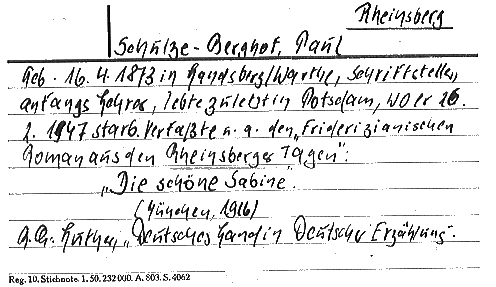 Rheinsberg
Schulze-Berghof, Paul
Geb. 16. 4. 1873 in Landsberg/Warthe, Schriftsteller,
anfangs Lehrer, lebte zuletzt in Potsdam, wo er 26.
2. 1947 starb. Verfaßte u. a. den „Friderizianischen
Roman aus den Rheinsberger Tagen":
„Die schöne Sabine.
(München, 1916)
Luther, „Deutsches Land in Deutscher Erzählung".
Reg. 10. Stichnote. 1. 50. 232000. A. 803. S. 4062